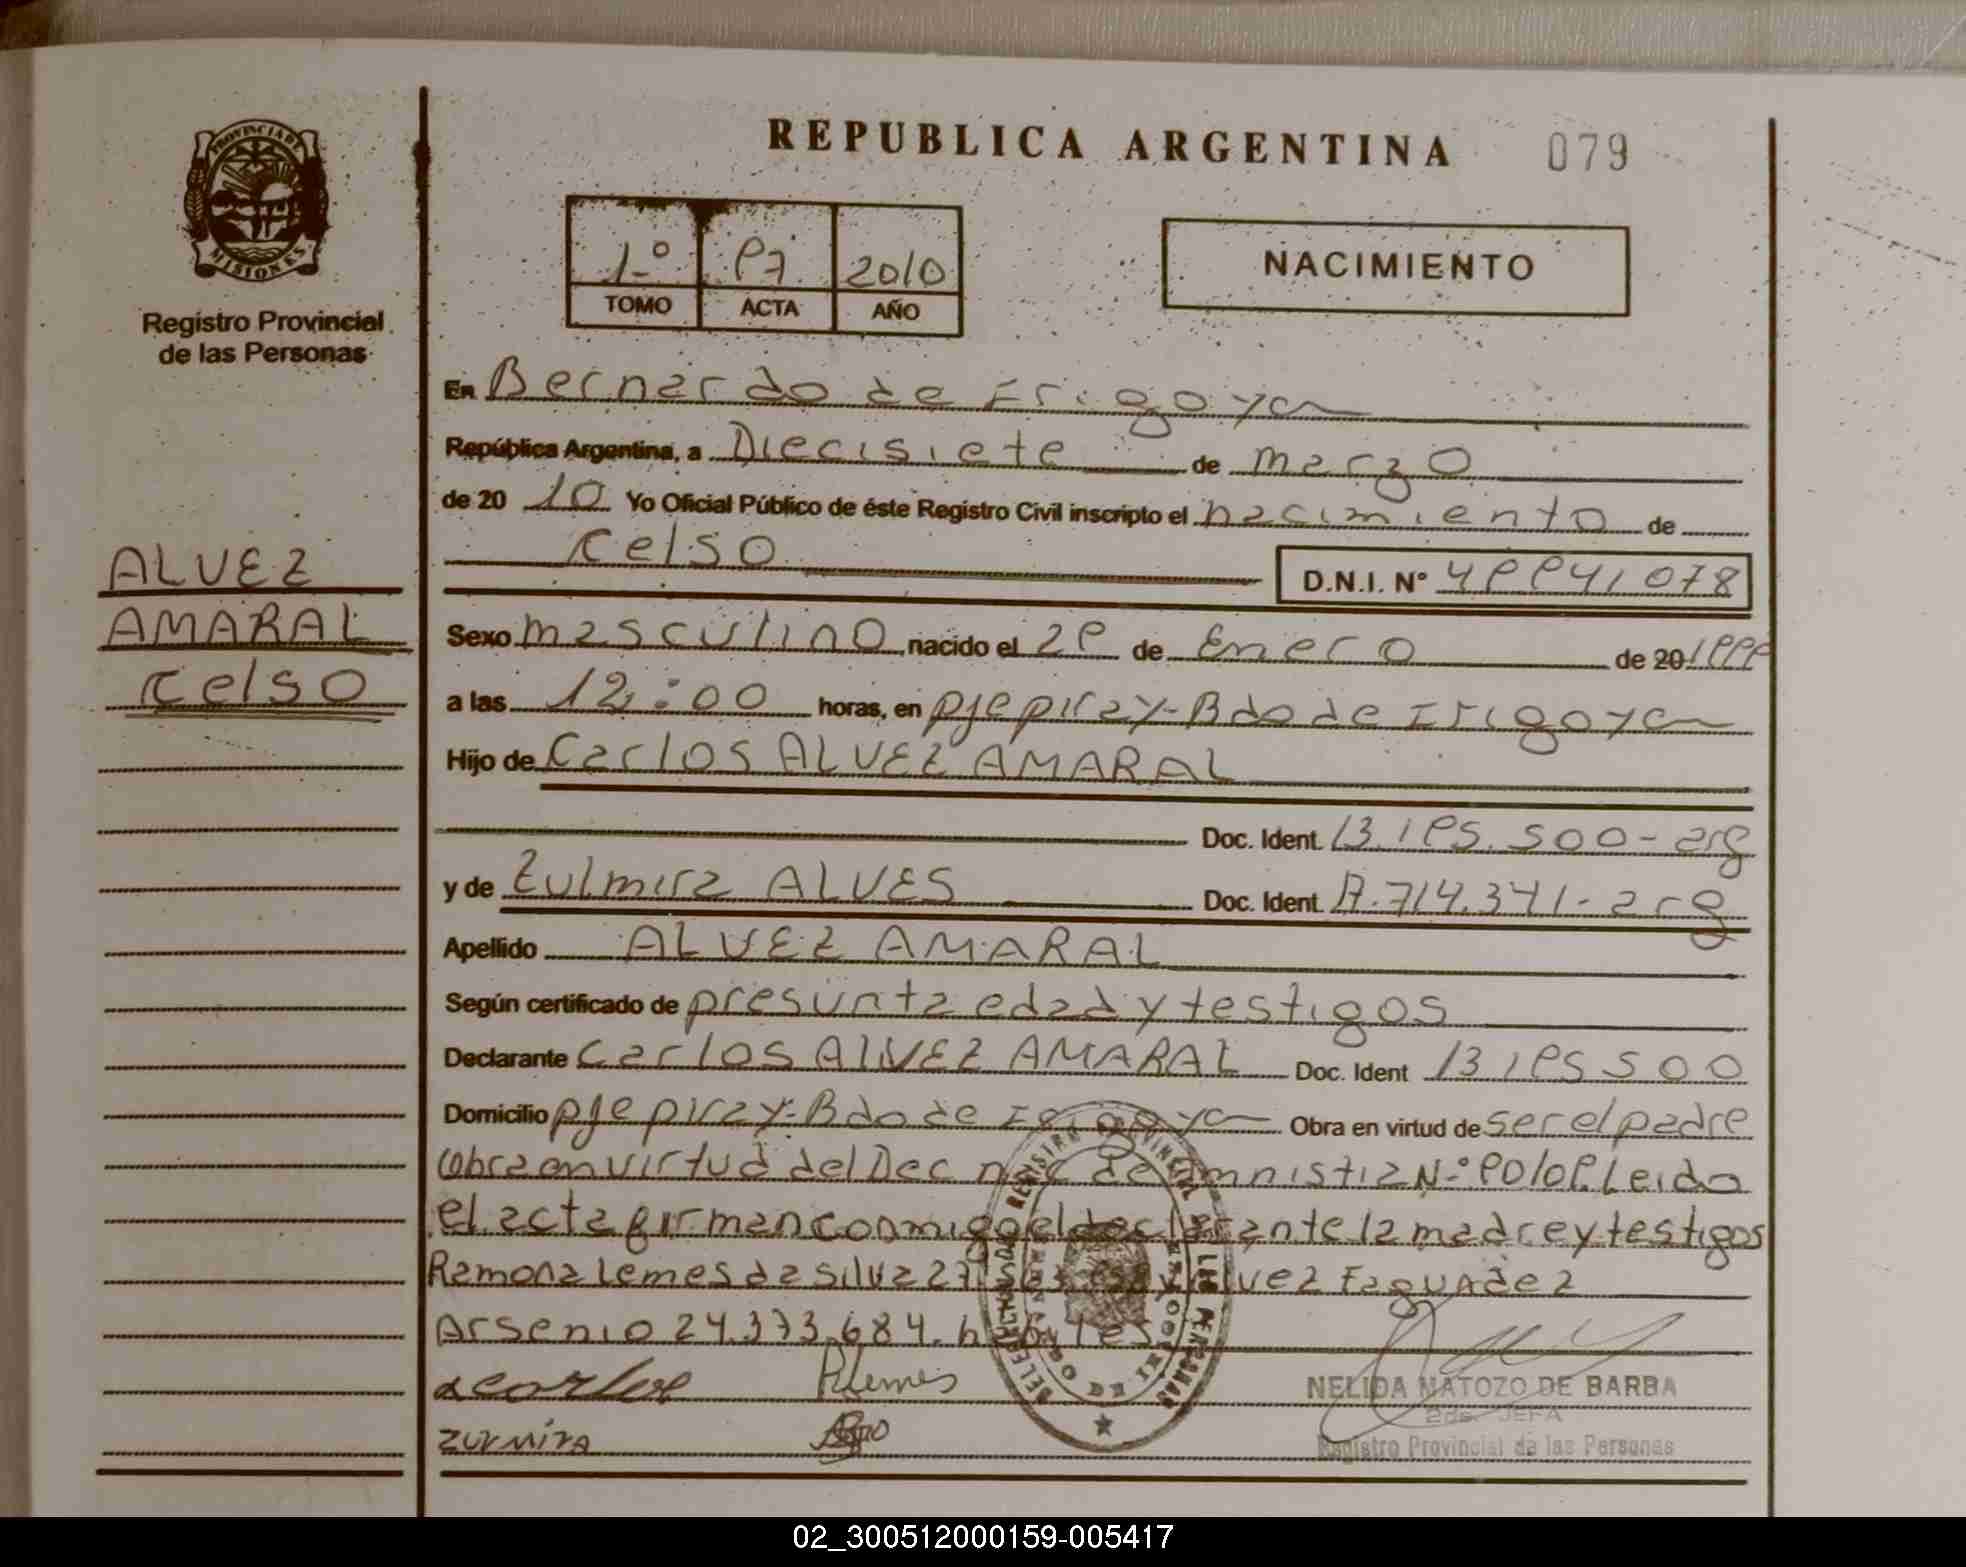 PROVINCIA DE
MISIONES
Registro Provincial
de las Personas
REPUBLICA ARGENTINA 079
1º 97 2010
TOMO ACTA AÑO
NACIMIENTO
En Bernardo de Irigoyen
República Argentina, a Diecisiete de marzo
de 20 10 Yo Oficial Público de éste Registro Civil inscripto el nacimiento de
Celso D.N.I. Nº 49941078
ALVEZ
AMARAL
Celso
Sexo masculino nacido el 29 de Enero de 20 1999
a las 12:00 horas, en pje piray-Bdo de Irigoyen
Hijo de Carlos ALVEZ AMARAL
Doc. Ident. 13.195.500-arg
y de Zulmira ALVES Doc. Ident. .714.341-arg
Apellido ALVEZ AMARAL
Según certificado de presunta edad y testigos
Declarante Carlos ALVEZ AMARAL Doc. Ident 13195500
Domicilio pje piray-Bdo de Irigoyen Obra en virtud de ser el padre
Obra en virtud del Dec nac de amnistia N-º 90/09. Leido
el acta firman conmigo el declarante la madre y testigos
Ramona Lemes da silva y Alvez Faguadez
Arsenio 24.373.684. habiles
carlos RLemes
zurmira
REGISTRO PROVINCIAL DE LAS PERSONAS
NELIDA MATOZO DE BARBA
2da. JEFA
Registro Provincial de las Personas
02_300512000159-005417